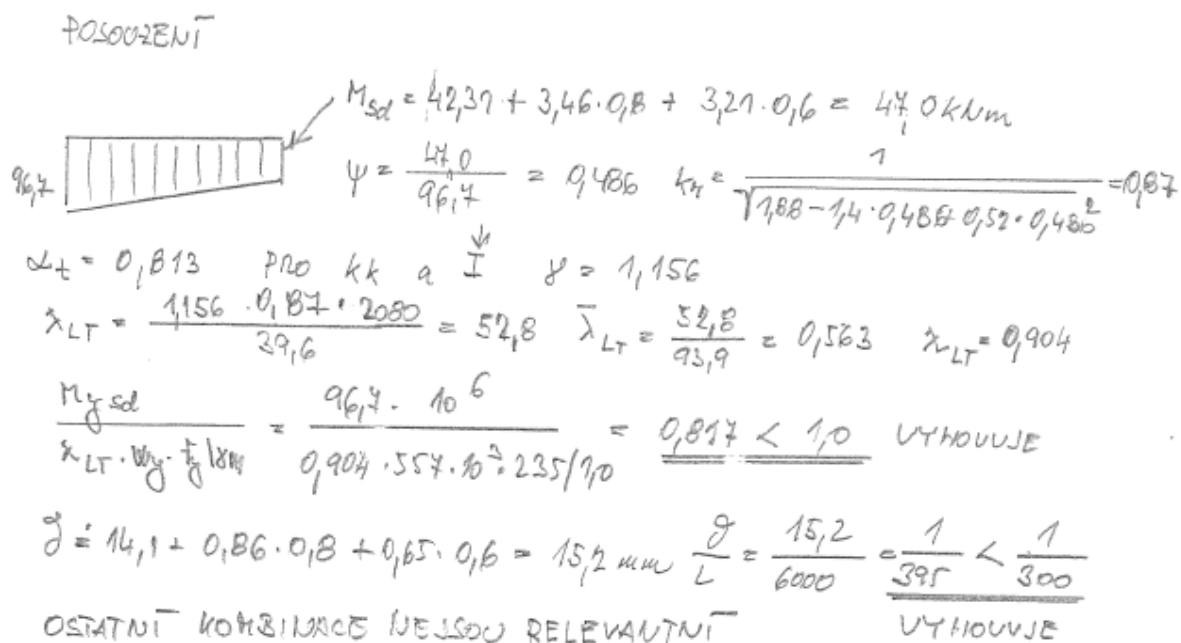 POSOUZENÍ
M_Sd = 42,31 + 3,46·0,8 + 3,21·0,6 = 47,0 kNm
96,7 ψ = 47,0 / 96,7 = 0,486 k_n = 1 / √(1,88 - 1,4·0,486 + 0,52·0,486²) = 0,87
α_t = 0,813 PRO kk a I γ = 1,156
λ_LT = 1,156 · 0,87 · 2080 / 39,6 = 52,8 λ̄_LT = 52,8 / 93,9 = 0,563 χ_LT = 0,904
M_y Sd / χ_LT · W_y · f_y / γ_M = 96,7 · 10⁶ / 0,904 · 557 · 10³ · 235/1,0 = 0,817 < 1,0 VYHOVUJE
δ ≐ 14,1 + 0,86·0,8 + 0,65·0,6 = 15,2 mm δ / L = 15,2 / 6000 = 1 / 395 < 1 / 300
OSTATNÍ KOMBINACE NEJSOU RELEVANTNÍ VYHOVUJE